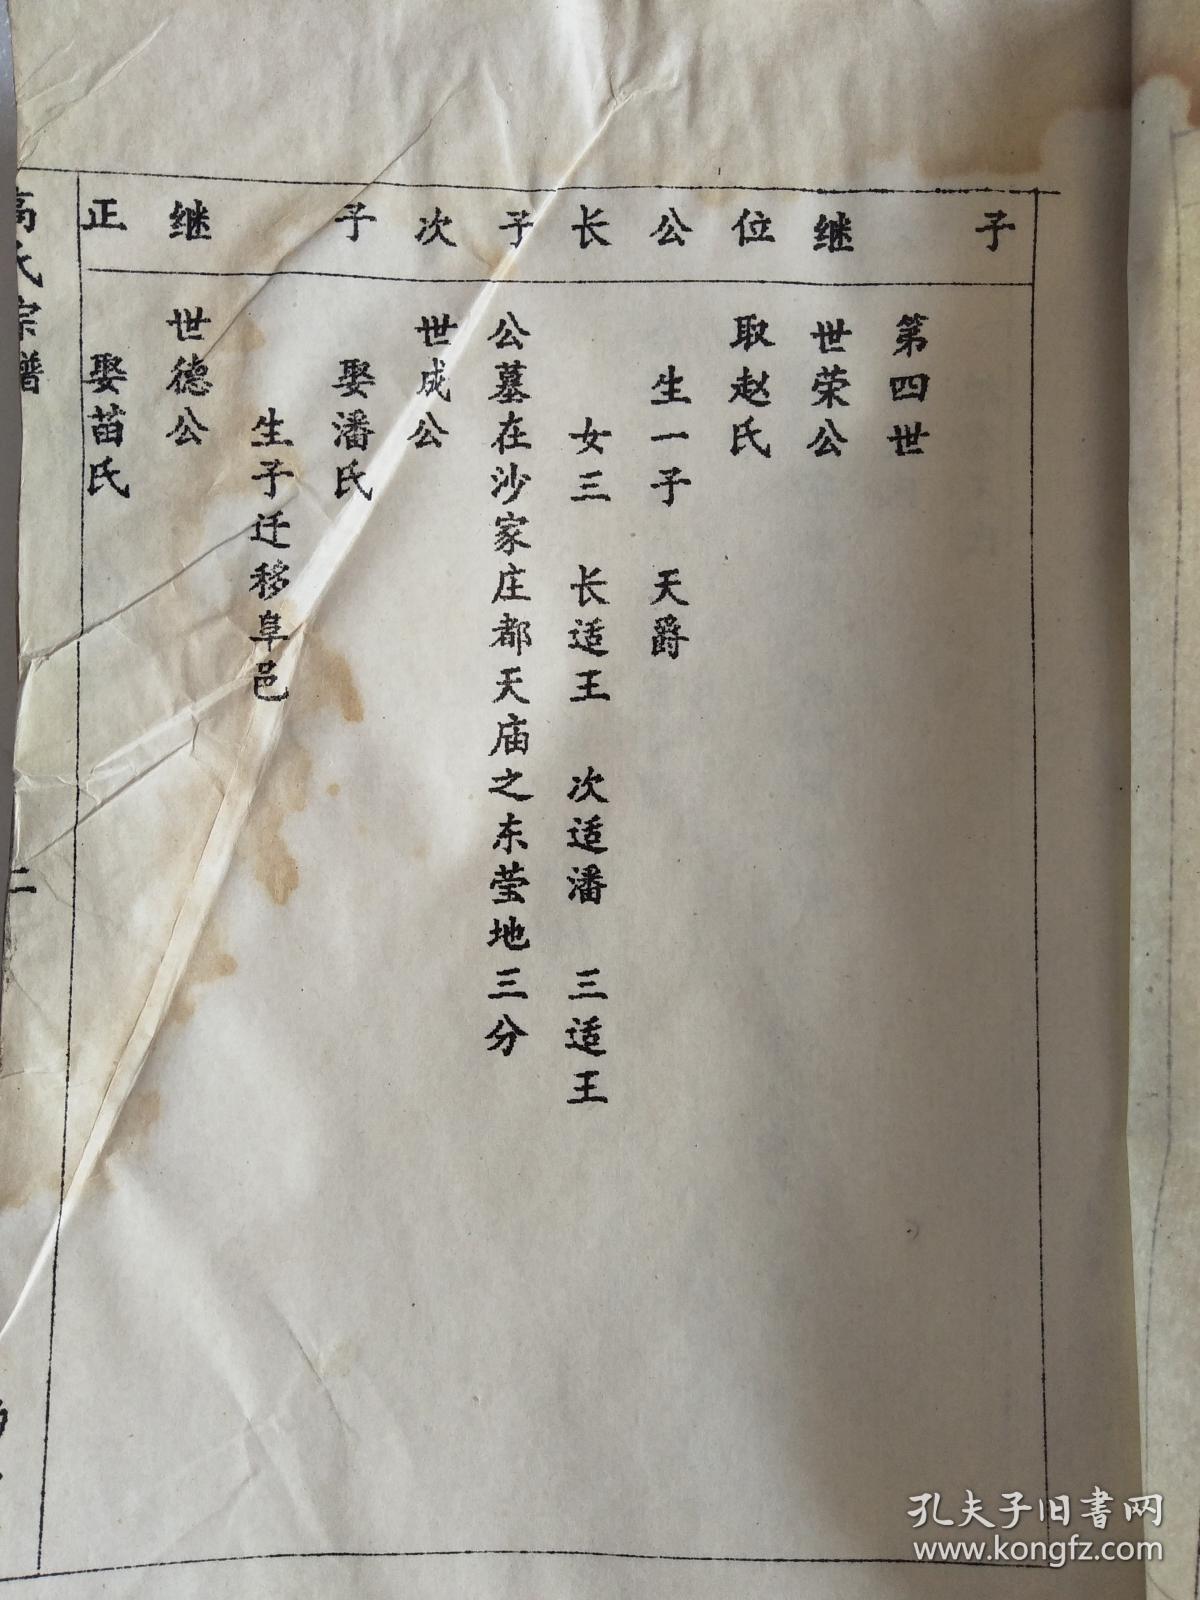 子
第四世
继 世荣公
位 取赵氏
公 生一子 天爵
长 女三 长适王 次适潘 三适王
子 公墓在沙家庄都天庙之东莹地三分
次 世成公
子 娶潘氏
生子迁移阜邑
继 世德公
正 娶苗氏
高氏宗谱 二
孔夫子旧书网
www.kongfz.com